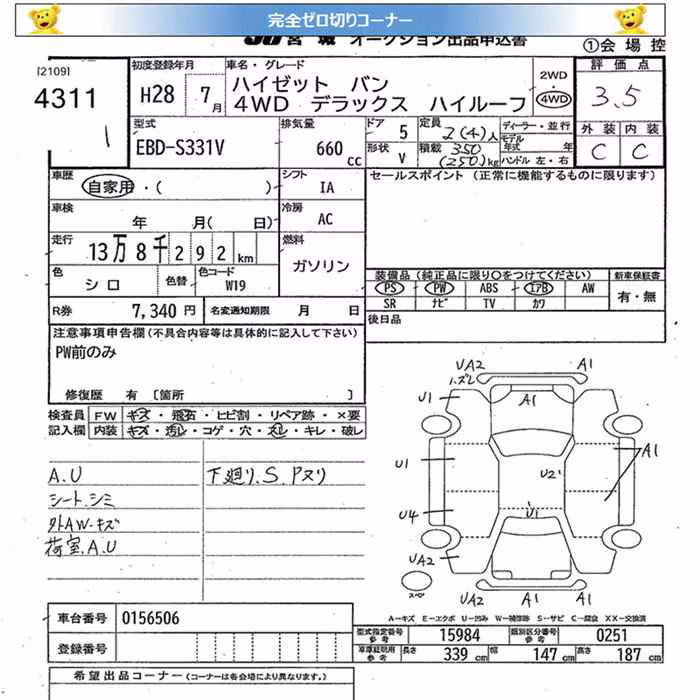 完全ゼロ切りコーナー
JU宮城 オークション出品申込書
①会場控
[2109]
4311
1
初度登録年月
H28 7月
車名・グレード
ハイゼット バン
4WD デラックス ハイルーフ
2WD
4WD
評価点
3.5
型式
EBD-S331V
排気量
660cc
ドア 5
形状 V
定員 2(4)人
積載 350
(250)kg
ディーラー・並行
モデル年式 年
ハンドル 左・右
外装 内装
C C
車歴
自家用・( )
シフト
IA
セールスポイント (正常に機能するものに限ります)
車検
年 月( 日)
冷房
AC
走行
13万8千292km
燃料
ガソリン
色
シロ
色替
色コード
W19
装備品(純正品に限り○をつけてください)
新車保証書
PS PW ABS エアB AW
SR ナビ TV カワ
有・無
R券 7,340円
名変通知期限 月 日
後日品
注意事項申告欄(不具合内容等は具体的に記入して下さい)
PW前のみ
修復歴 有 [箇所 ]
検査員 FW キズ・飛石・ヒビ割・リペア跡・×要
記入欄 内装 キズ・汚レ・コゲ・穴・スレ・キレ・破レ
A.U
シート.シミ
外AW.キズ
荷室.A.U
下廻り.S.Pヌリ
UA2 A1
ハズレ
U1 A1
A1
U1 U2
U4 U1
UA2
UA2 A1
スペア
A-キズ E-エクボ U-凹み W-補修跡 S-サビ C-腐食 XX-交換済
車台番号 0156506
登録番号
型式指定番号 参考 15984
類別区分番号 参考 0251
車庫証明用 参考 長さ 339cm 幅 147cm 高さ 187cm
希望出品コーナー (コーナーは各会場により異なります。)